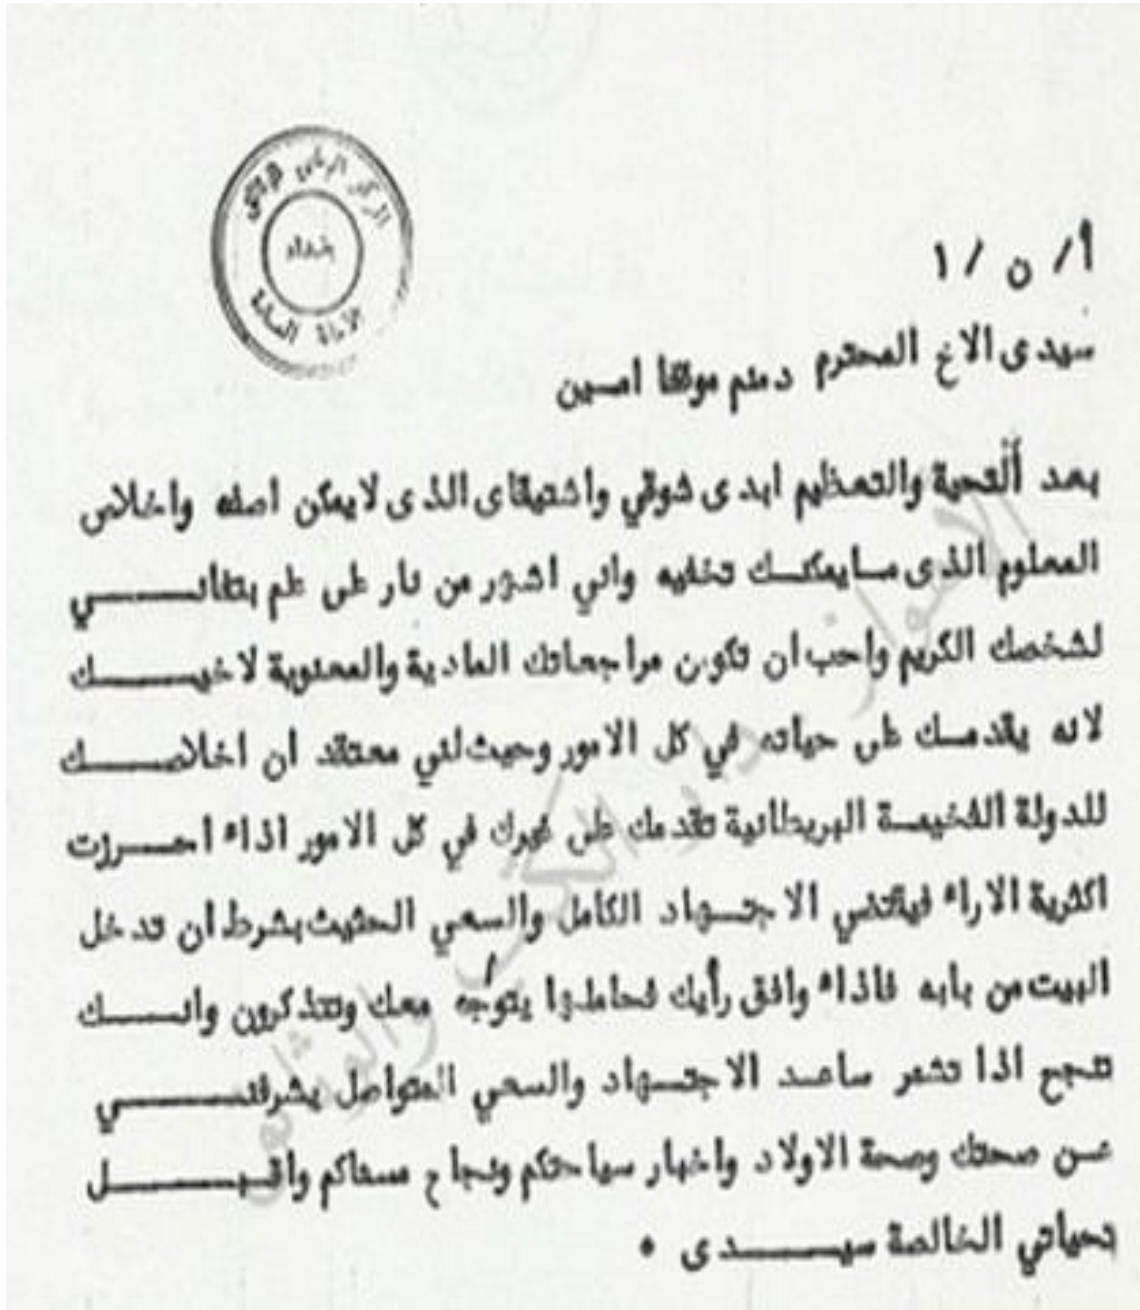 المركز الوثائقي
بغداد
الامانة العامة
أ/ ٥ /١
سيدى الاخ المحترم دمتم موفقا امسين
بعد ألتحية والتعظيم ابدى شوقي واشتيقاى الذى لايمكن اصفه واخلاص
المعلوم الذى مايمكك تخفيه واني اشهر من نار على علم بتفانـــي
لشخصك الكريم واحب ان تكون مراجعاتك المادية والمعنوية لاخيـــك
لانه يقدمك على حياته في كل الامور وحيث لني معتقد ان اخلاصـــك
للدولة الفخيمة البريطانية تقدمك على غيرك في كل الامور اذاء احـــرزت
اكثرية الاراء فيقتضي الاجتهاد الكامل والسعي الحثيث بشرط ان تدخل
البيت من بابه فاذاء وافق رأيك فحاملها يتوجه معك وتتذكرون وانـــك
تنجح اذا تشمر ساعد الاجتهاد والسعي المتواصل يشرفنـــي
عن صحتك وصحة الاولاد واخبار سياحتكم ونجاح مسعاكم واقبـــل
تحياتي الخالصة سيـــدى ٠